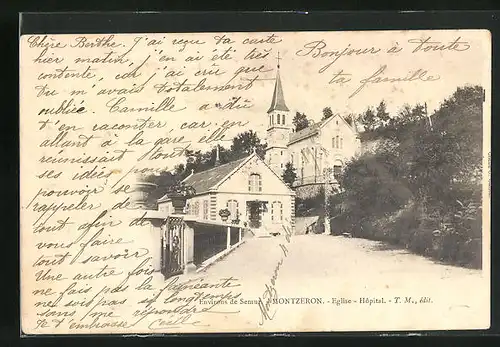 Chère Berthe. J'ai reçu ta carte
hier matin, j'en ai été très
contente, car j'ai cru que
tu m'avais totalement
oubliée. Camille a dû
t'en raconter car en
allant à la gare, elle
réunissait tout
ses idées pour
pouvoir se
rappeler de
tout afin de
vous faire
tout savoir.
Une autre fois
ne fais pas la fainéante
ne sois pas si longtemps
sans me répondre
Je t'embrasse Cécile
Bonjour à toute
ta famille.
Environs de Semur. MONTZERON. - Eglise - Hôpital. - T. M., édit.